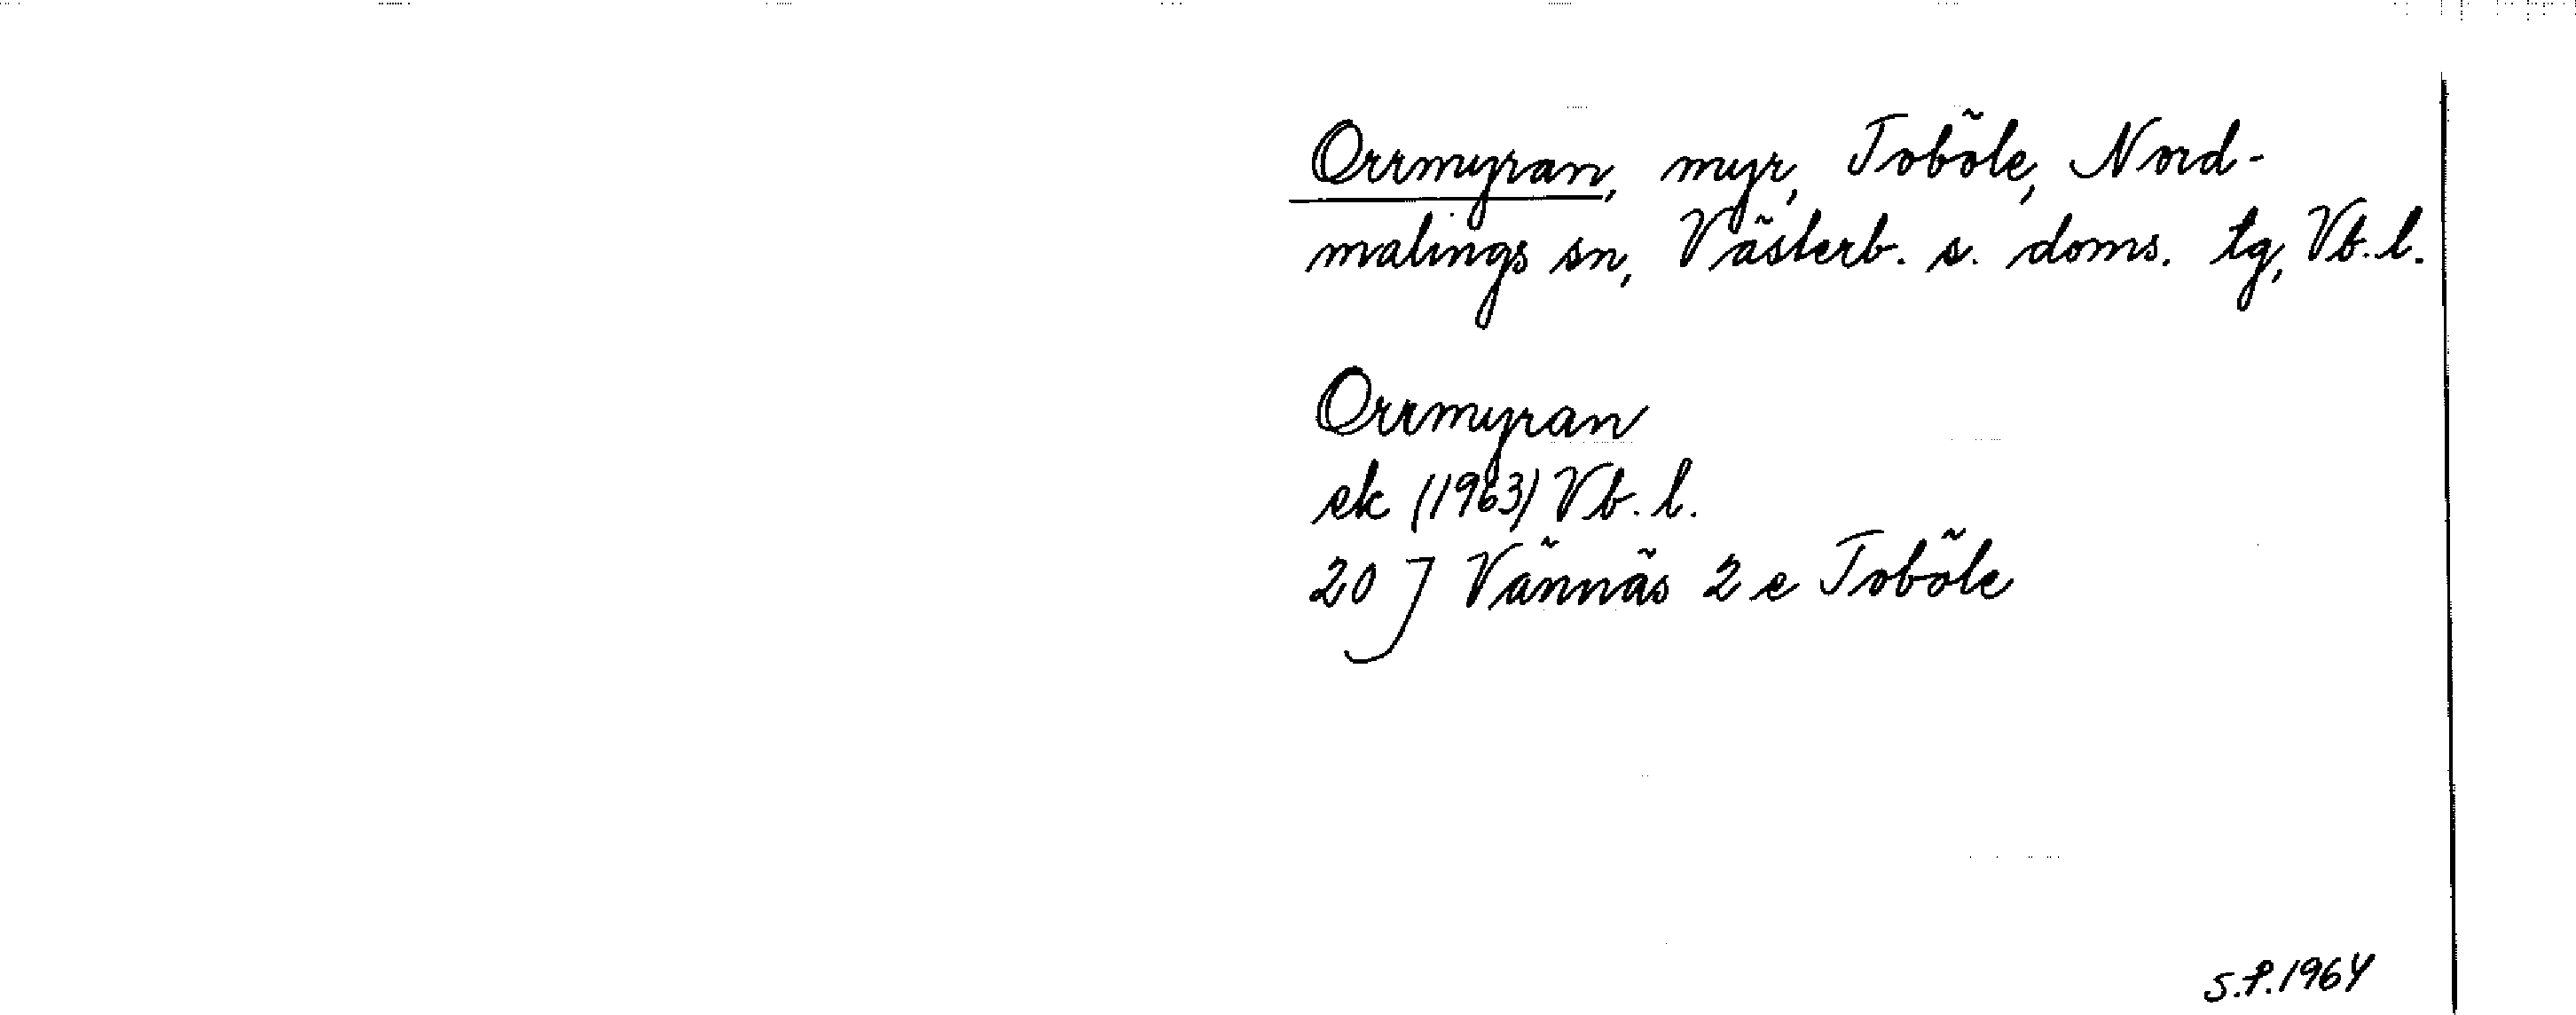 Orrmyran, myr, Toböle, Nord-
malings sn, Västerb. s. doms. tg, Vb. l.
Orrmyran
ek (1963) Vb. l.
20 J Vännäs 2 e Toböle
S.P. 1964